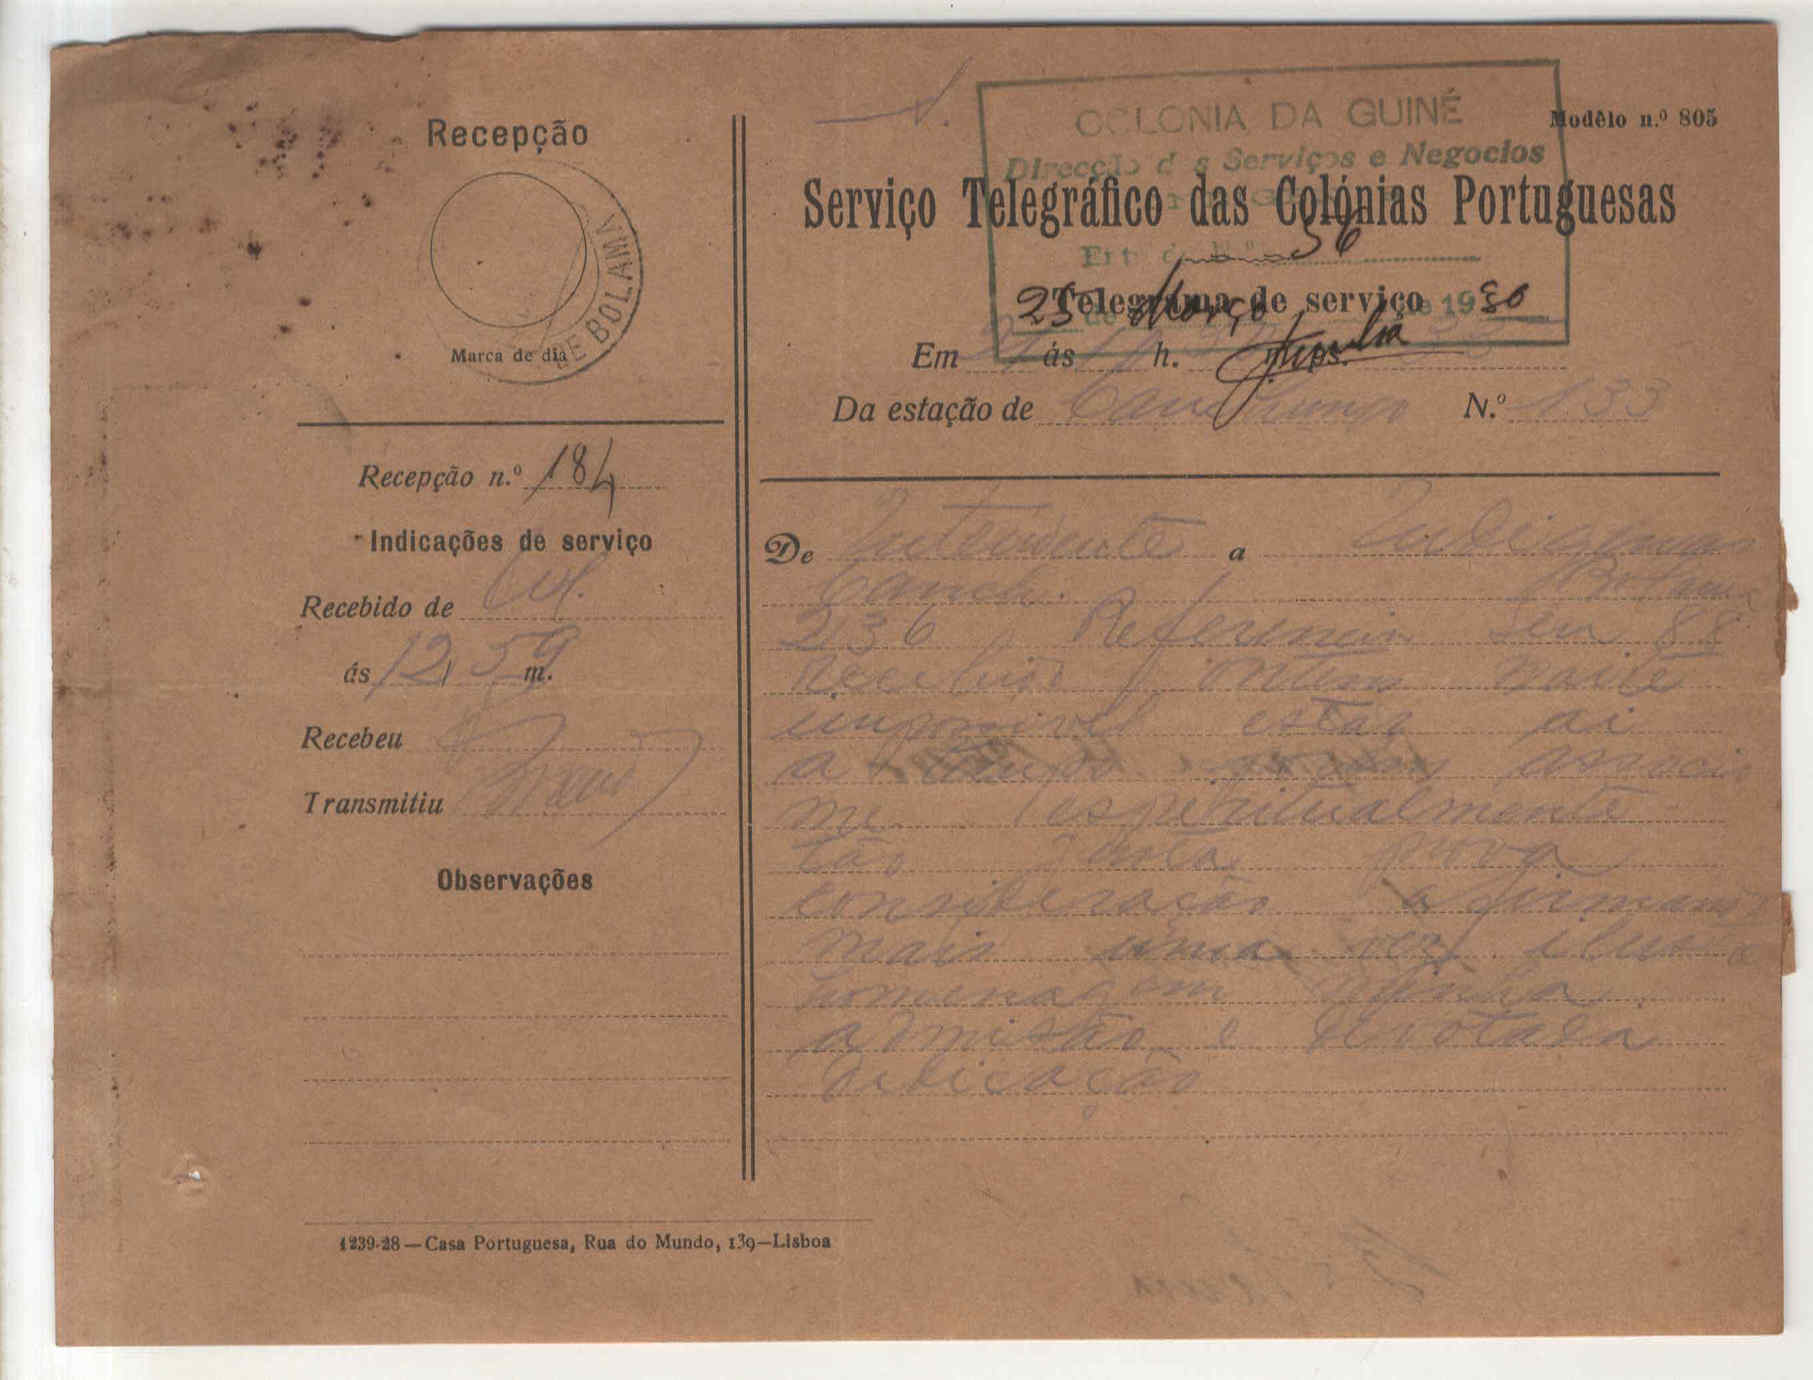 Recepção
Marca de dia
DE BOLAMA
Recepção n.º 184
Indicações de serviço
Recebido de
ás 12, 59 m.
Recebeu
Transmitiu
Observações
1239-28—Casa Portuguesa, Rua do Mundo, 139—Lisboa
COLONIA DA GUINÉ
Modêlo n.º 805
Direcção dos Serviços e Negocios
Serviço Telegráfico das Colónias Portuguesas
56
Telegrama de serviço
25 de Março de 1930
Em ás h.
Da estação de Canchungo N.º 133
De Intendente a Indigenas
Canch. Bolama
236 Referencia seu 88
recebido ontem noite
impossivel estar ai
a tempo associo
me espiritualmente
tão justa prova
consideração afirmando
mais uma vez
homenagem minha
e devotada
dedicação